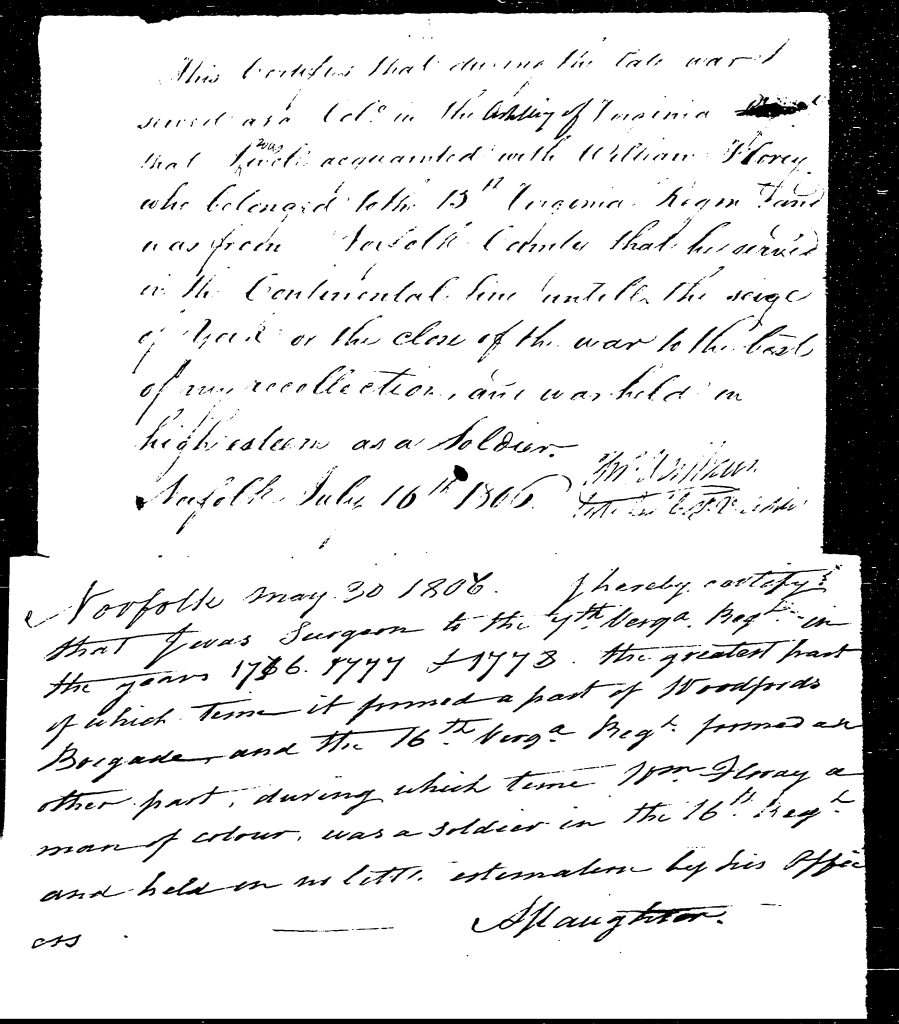 This Certifies that during the late war I
served as a Col. in the Artillery of Virginia
that I was well acquainted with William Florey
who belonged to the 15th Virginia Regmt and
was from Norfolk County that he served
in the Continental line untill the seige
of York or the close of the war to the best
of my recollection, and was held in
high esteem as a Soldier.
Norfolk July 16th 1806
Norfolk may 30 1806. I hereby certify
that I was Surgeon to the 7th Verga. Regt. in
the years 1776. 1777 & 1778. the greatest part
of which time it formed a part of Woodfords
Brigade, and the 16th Verga Regt. formed an
other part, during which time Wm Floray a
man of colour, was a soldier in the 16th Regt
and held in no little estimation by his Offic
ers.
A Slaughter.